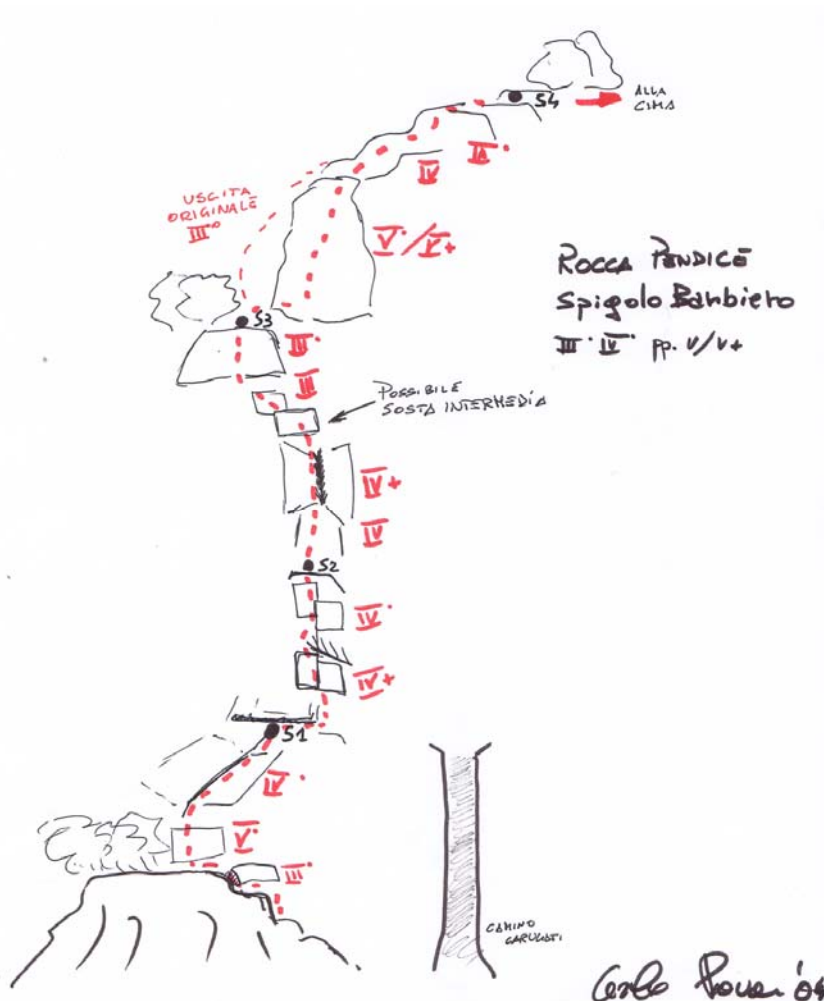 S4
ALLA
CIMA
IV°
IV
USCITA
ORIGINALE
III°
V°/V+
ROCCA PENDICE
Spigolo Barbiero
III° IV° pp. V/V+
S3
III°
III
POSSIBILE
SOSTA INTERMEDIA
IV+
IV
S2
IV°
IV+
S1
IV°
V°
III°
CAMINO
CARUGATI
Carlo